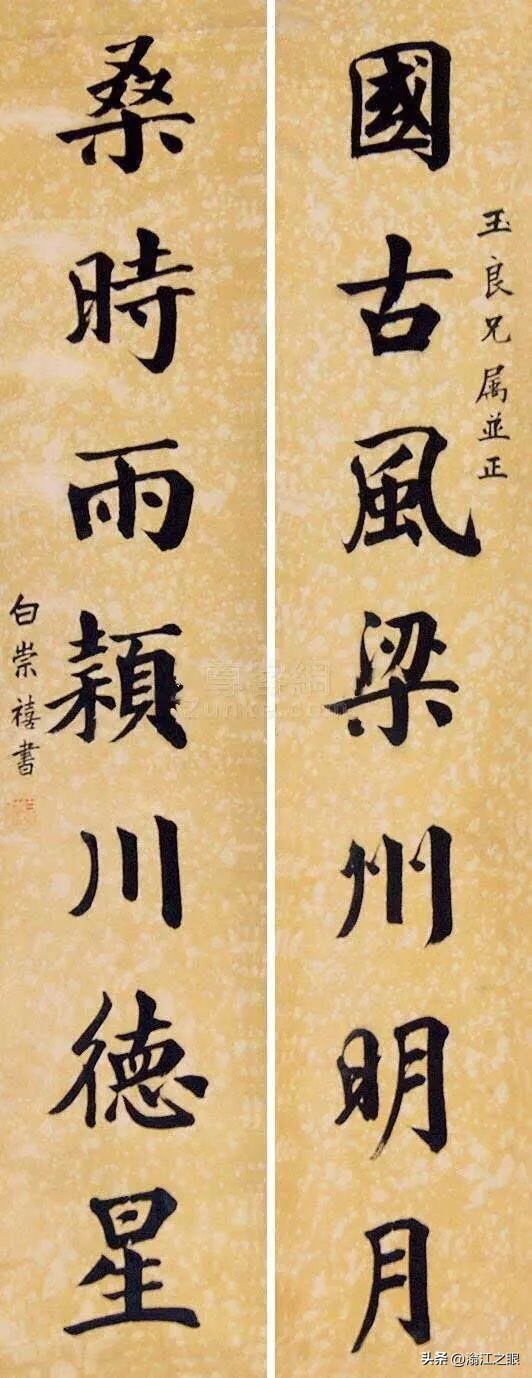 玉良兄属並正
國古風梁州明月
桑時雨潁川德星
白崇禧書
尊客網
Zunke.com
头条 @滃江之眼